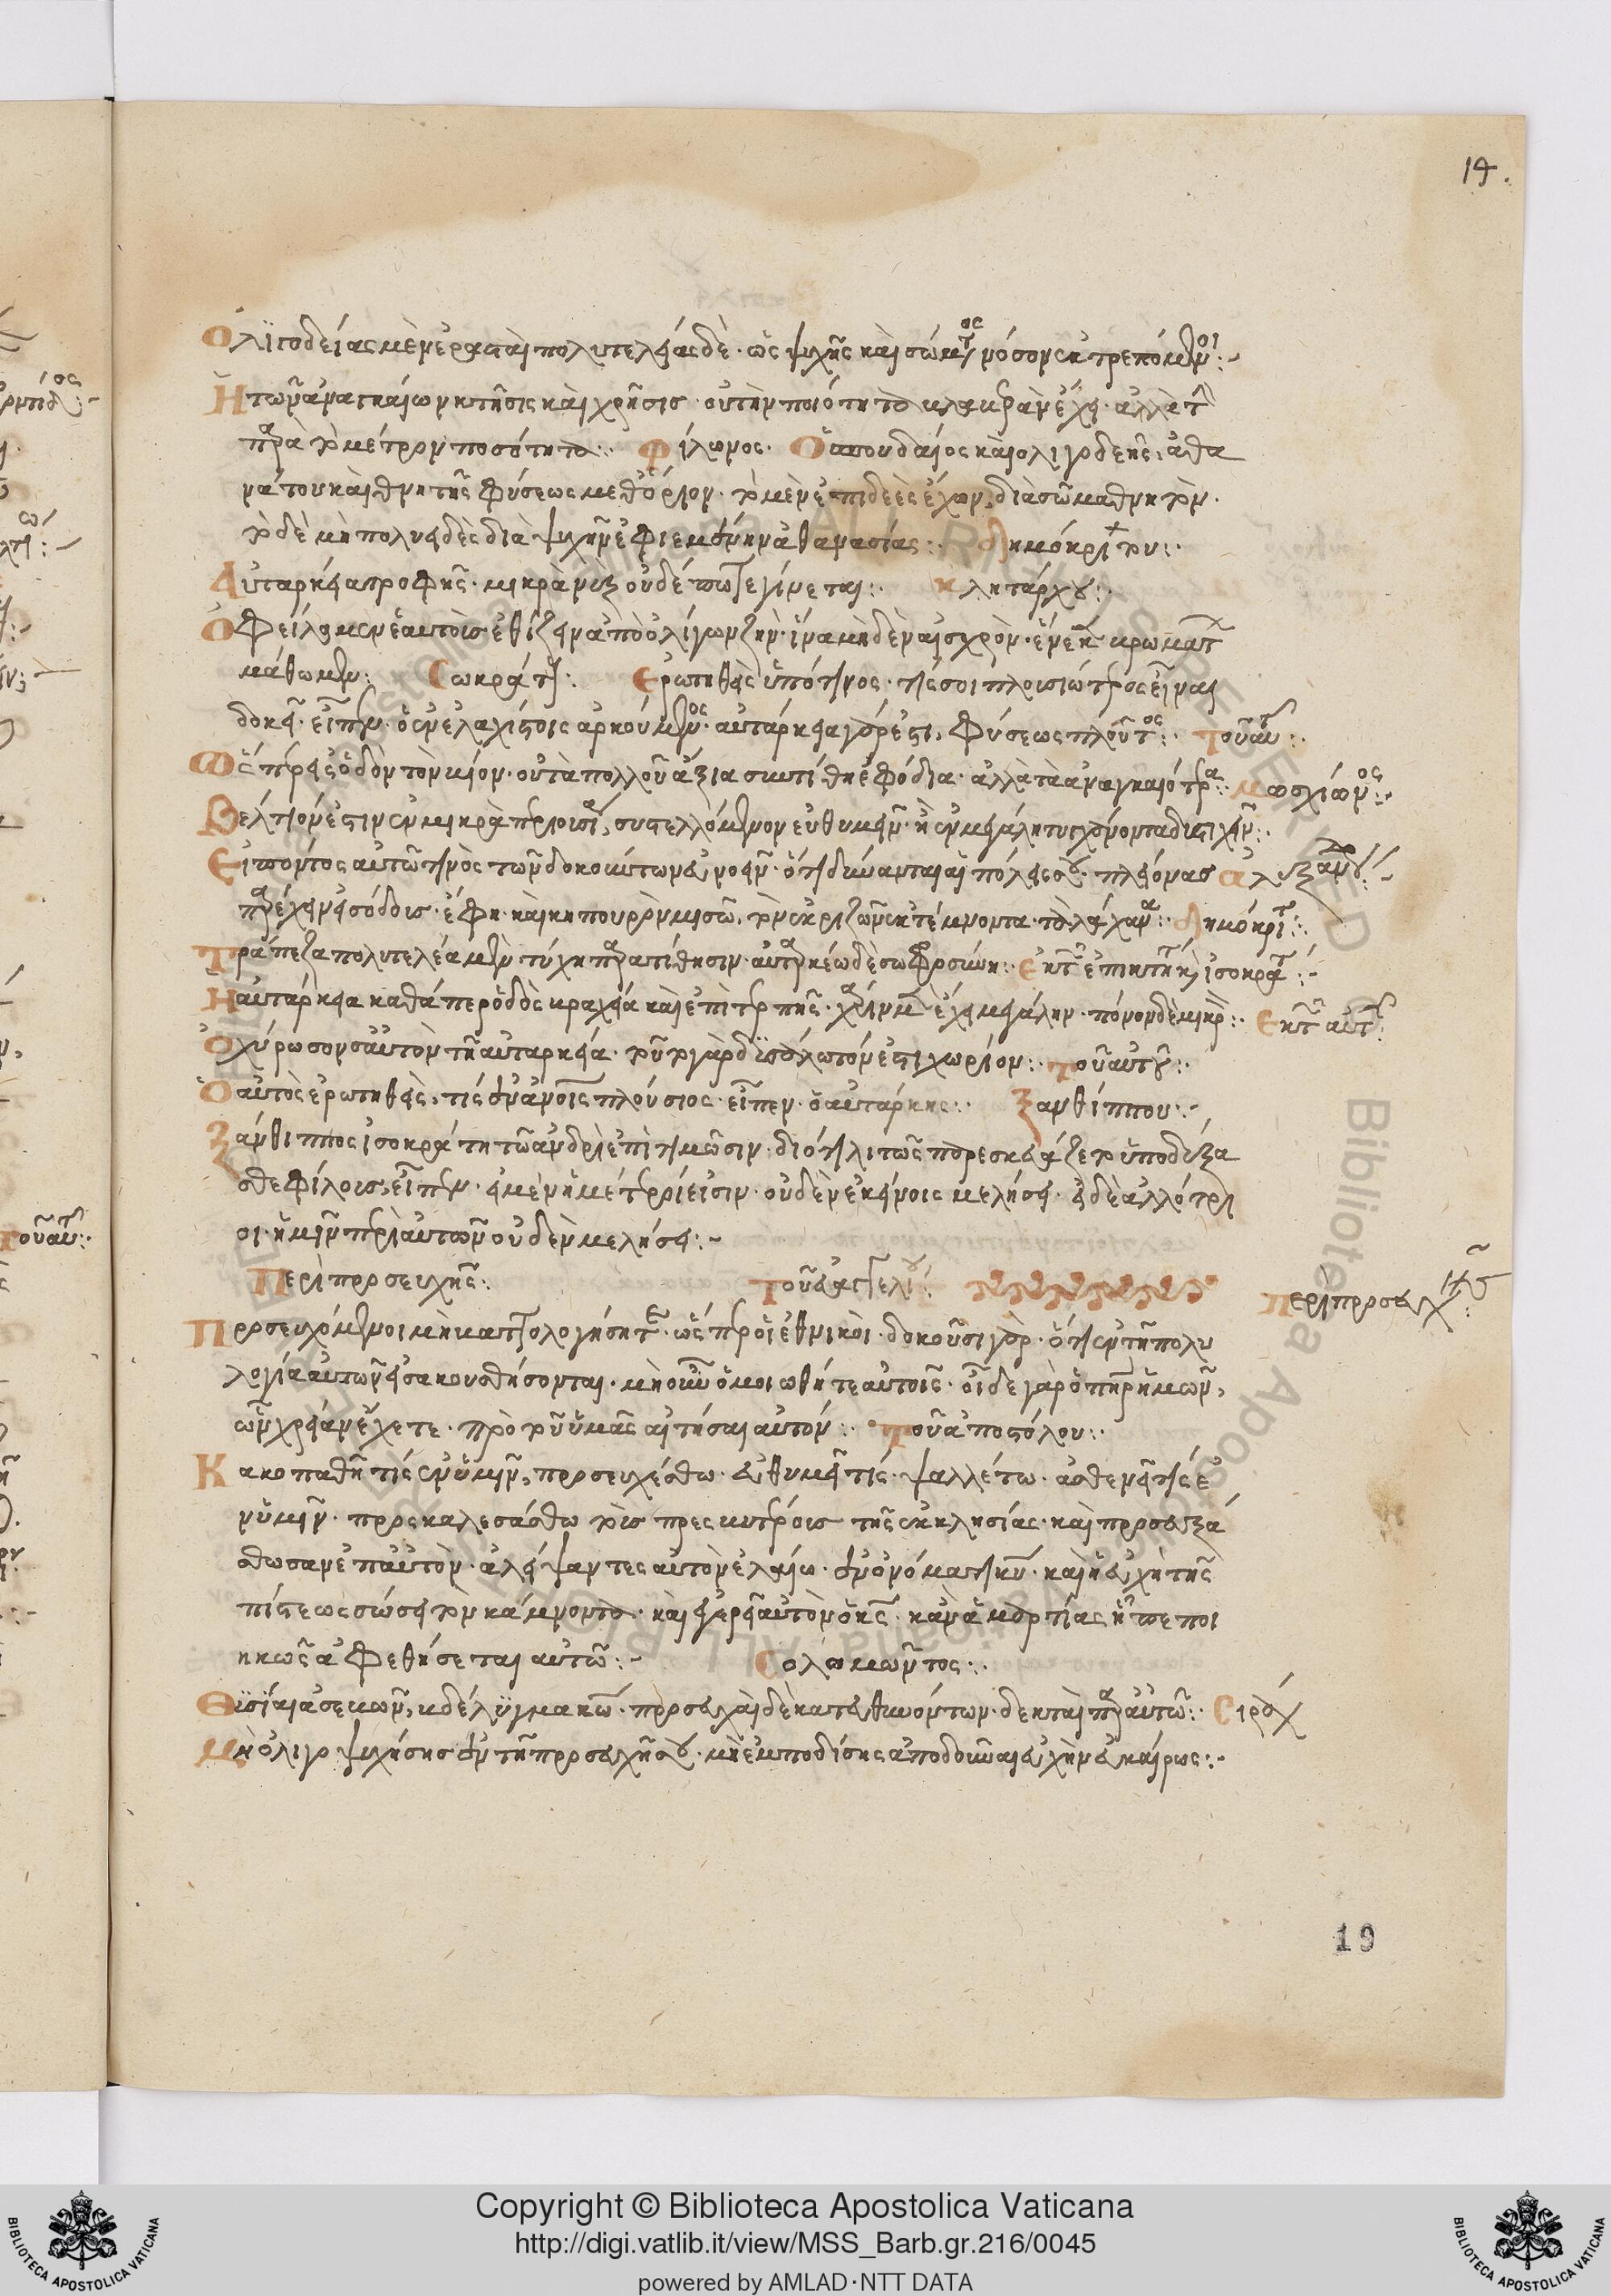 19.
Ὀλιγοδείας μὲν ἐρασταὶ πολυτελείας δὲ · ὡς ψυχῆς καὶ σώματος νόσον ἐκτρεπόμενοι:~
Ἡ τῶν ἀναγκαίων κτῆσις καὶ χρῆσις · οὐ τὴν ποιότητα βλαβερὰν ἔχει · ἀλλὰ τὴν
παρὰ τὸ μέτρον ποσότητα:· Φίλωνος· Ὁ σπουδαῖος καὶ ὀλιγοδεὴς, ἀθα
νάτου καὶ θνητῆς φύσεως μεθόριον · τὸ μὲν ἐπιδεὲς ἔχων, διὰ σῶμα θνητόν ·
τὸ δὲ μὴ πολυδεὲς διὰ ψυχὴν ἐφιεμένην ἀθανασίας:· Δημοκρίτου:·
Αὐταρκείᾳ τροφῆς · μικρὰ νὺξ οὐδέποτε γίνεται:· Κλητάρχου:·
Ὀφείλομεν ἑαυτοὺς ἐθίζειν ἀπὸ ὀλίγων ζῆν · ἵνα μηδὲν αἰσχρὸν · ἕνεκεν χρωμάτων
μάθωμεν: Σωκράτους: Ἐρωτηθεὶς ὑπό τινος · τίς σοι πλουσιώτερος εἶναι
δοκεῖ · εἶπεν · ὁ ἐν ἐλαχίστοις ἀρκούμενος · αὐτάρκεια γάρ ἐστι, φύσεως πλοῦτος:· Τοῦ αὐτοῦ:·
Ὥσπερ εἰς ὁδὸν τὸν βίον · οὐ τὰ πολλοῦ ἄξια συντίθει ἐφόδια · ἀλλὰ τὰ ἀναγκαιότερα:· Μοσχίωνος:·
Βέλτιόν ἐστιν ἐν μικρᾷ περιουσίᾳ, συστελλόμενον εὐθυμεῖν · ἢ ἐν μεγάλῃ τυγχάνοντα δυστυχεῖν:·
Εἰπόντος αὐτῷ τινὸς τῶν δοκούντων εὐνοεῖν · ὅτι δύνανται αἱ πόλεις σου · πλείονας Ἀλεξάνδρου:~
παρέχειν εἰσόδους · ἔφη · καὶ κηπουρὸν μισῶ, τὸν ἐκ ῥιζῶν ἐκτέμνοντα τὰ λάχανα:· Δημοκρίτου:·
Τράπεζαν πολυτελέα μὲν τύχη παρατίθησιν · αὐταρκέα δὲ σωφροσύνη:· Ἐκ τοῦ Ἐπικτήτου καὶ Ἰσοκράτους:~
Ἡ αὐτάρκεια καθάπερ ὁδὸς βραχεῖα καὶ ἐπιτερπὴς · χάριν μὲν ἔχει μεγάλην · πόνον δὲ μικρόν:· Ἐκ τοῦ αὐτοῦ:
Ὀχύρωσον σαυτὸν τῇ αὐταρκείᾳ · τοῦτο γὰρ δυσάλωτόν ἐστι χωρίον:· τοῦ αὐτοῦ:·
Ὁ αὐτὸς ἐρωτηθεὶς, τίς ἐν ἀνθρώποις πλούσιος · εἶπεν · ὁ αὐτάρκης:· Ξανθίππου:·
Ξάνθιππος Ἰσοκράτη τῷ ἀνδρὶ ἐπιτιμῶσιν · διότι λιτῶς παρεσκευάζετο ὑποδέξα
σθαι φίλους, εἶπεν · εἰ μὲν ἡμέτεροί εἰσιν · οὐδὲν ἐκείνοις μελήσει · εἰ δὲ ἀλλότρι
οι · ἡμῖν περὶ αὐτῶν οὐδὲν μελήσει:~
Περὶ προσευχῆς:· Τοῦ εὐαγγελίου: Περὶ προσευχῆς:
Προσευχόμενοι μὴ βαττολογήσητε · ὥσπερ οἱ ἐθνικοὶ · δοκοῦσι γὰρ · ὅτι ἐν τῇ πολυ
λογίᾳ αὐτῶν εἰσακουσθήσονται · μὴ οὖν ὁμοιωθῆτε αὐτοῖς · οἶδε γὰρ ὁ πατὴρ ἡμῶν,
ὧν χρείαν ἔχετε · πρὸ τοῦ ὑμᾶς αἰτῆσαι αὐτόν:· Τοῦ ἀποστόλου:·
Κακοπαθεῖ τίς ἐν ὑμῖν, προσευχέσθω · εὐθυμεῖ τίς · ψαλλέτω · ἀσθενεῖ τίς ἐ
ν ὑμῖν · προσκαλεσάσθω τοὺς πρεσβυτέρους τῆς ἐκκλησίας · καὶ προσευξά
σθωσαν ἐπ' αὐτὸν · ἀλείψαντες αὐτὸν ἐλαίῳ · ἐν ὀνόματι κυρίου · καὶ ἡ εὐχὴ τῆς
πίστεως σώσει τὸν κάμνοντα · καὶ ἐγερεῖ αὐτὸν ὁ κύριος · κἂν ἁμαρτίας ᾖ πεποι
ηκὼς ἀφεθήσεται αὐτῷ:~ Σολομῶντος:·
Θυσίαι ἀσεβῶν, βδέλυγμα κυρίῳ · προσευχαὶ δὲ κατευθυνόντων · δεκταὶ παρ' αὐτῷ:· Σιράχ
Μὴ ὀλιγοψυχήσῃς ἐν τῇ προσευχῇ σου · μὴ ἐμποδίσῃς ἀποδοῦναι εὐχὴν εὐκαίρως:~
19
Copyright © Biblioteca Apostolica Vaticana
http://digi.vatlib.it/view/MSS_Barb.gr.216/0045
powered by AMLAD·NTT DATA
BIBLIOTECA APOSTOLICA VATICANA
BIBLIOTECA APOSTOLICA VATICANA